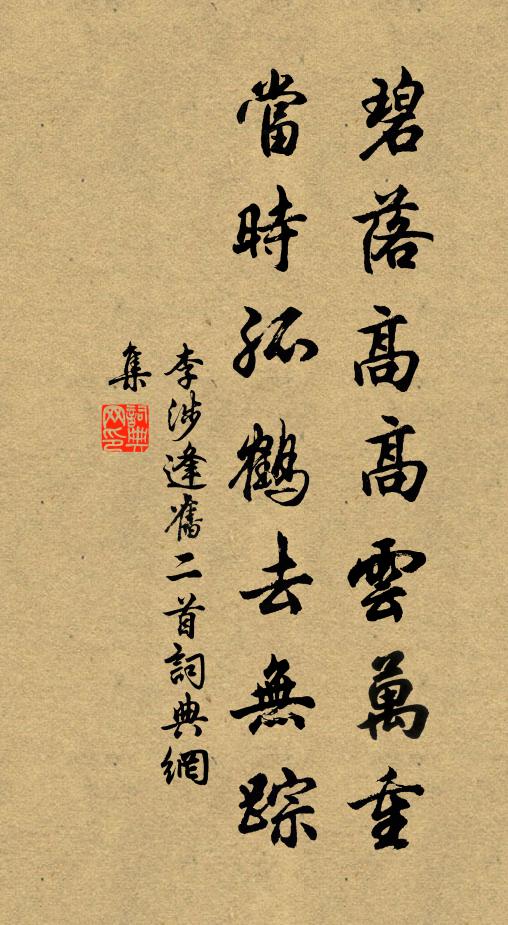 碧落高高雲萬重
當時孤鶴去無踪
李涉逢舊二首詞典網
集
詞典
网印